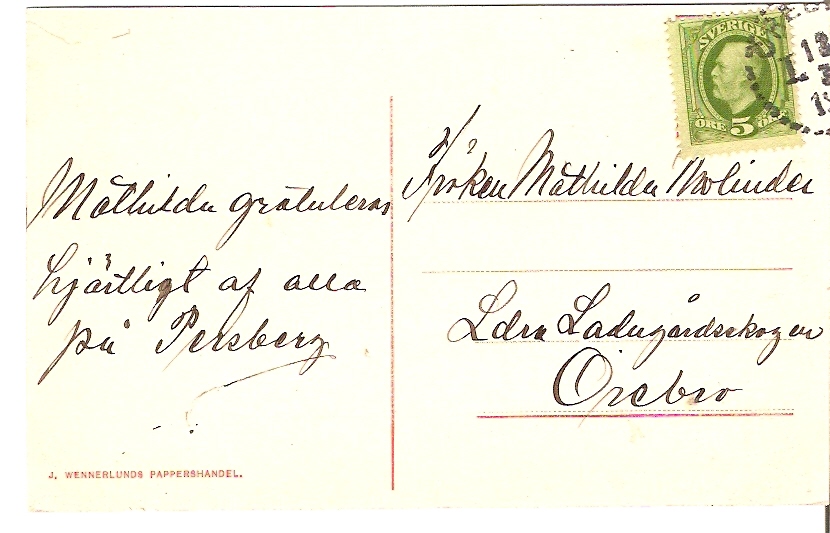 Mathilda gratuleras
hjärtligt af alla
på Persberg
J. WENNERLUNDS PAPPERSHANDEL.
SVERIGE
ÖRE 5 ÖRE
Fröken Mathilda Molinder
Ldra Ladugårdsskogen
Örebro